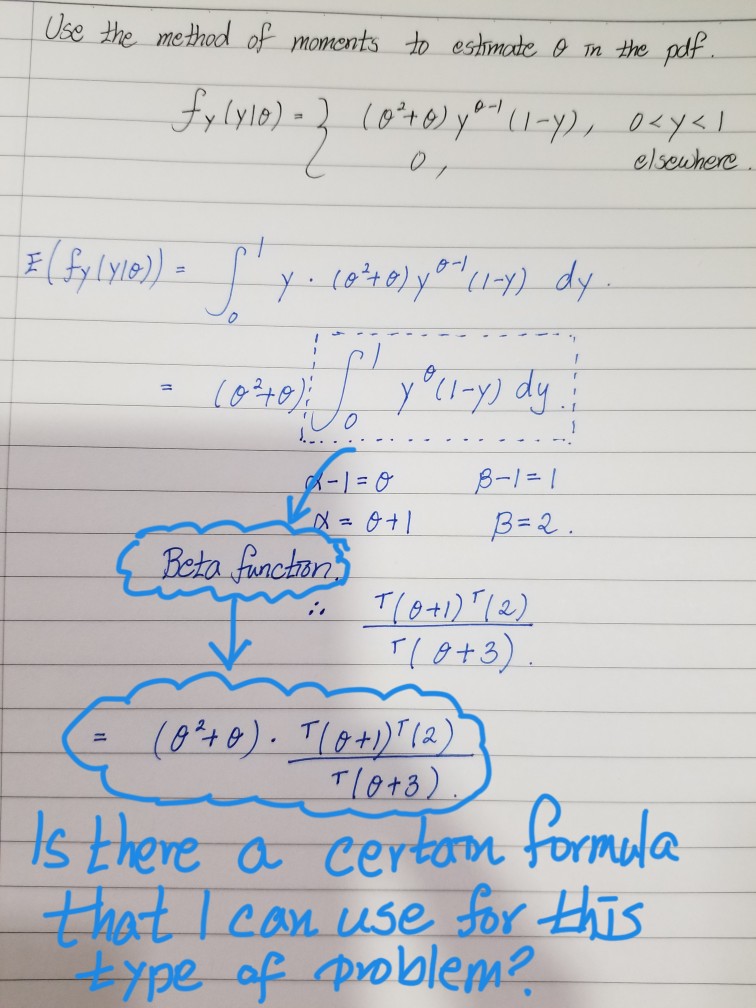 Use the method of moments to estimate θ in the pdf.
f_Y(y|θ) = { (θ²+θ) y^(θ-1) (1-y), 0<y<1
0, elsewhere.
E(f_Y(y|θ)) = ∫₀¹ y · (θ²+θ) y^(θ-1) (1-y) dy.
= (θ²+θ) ∫₀¹ y^θ (1-y) dy.
α-1=θ β-1=1
α = θ+1 β=2.
Beta function.
∴ Γ(θ+1)Γ(2)
Γ(θ+3).
= (θ²+θ) · Γ(θ+1)Γ(2)
Γ(θ+3).
Is there a certain formula
that I can use for this
type of problem?